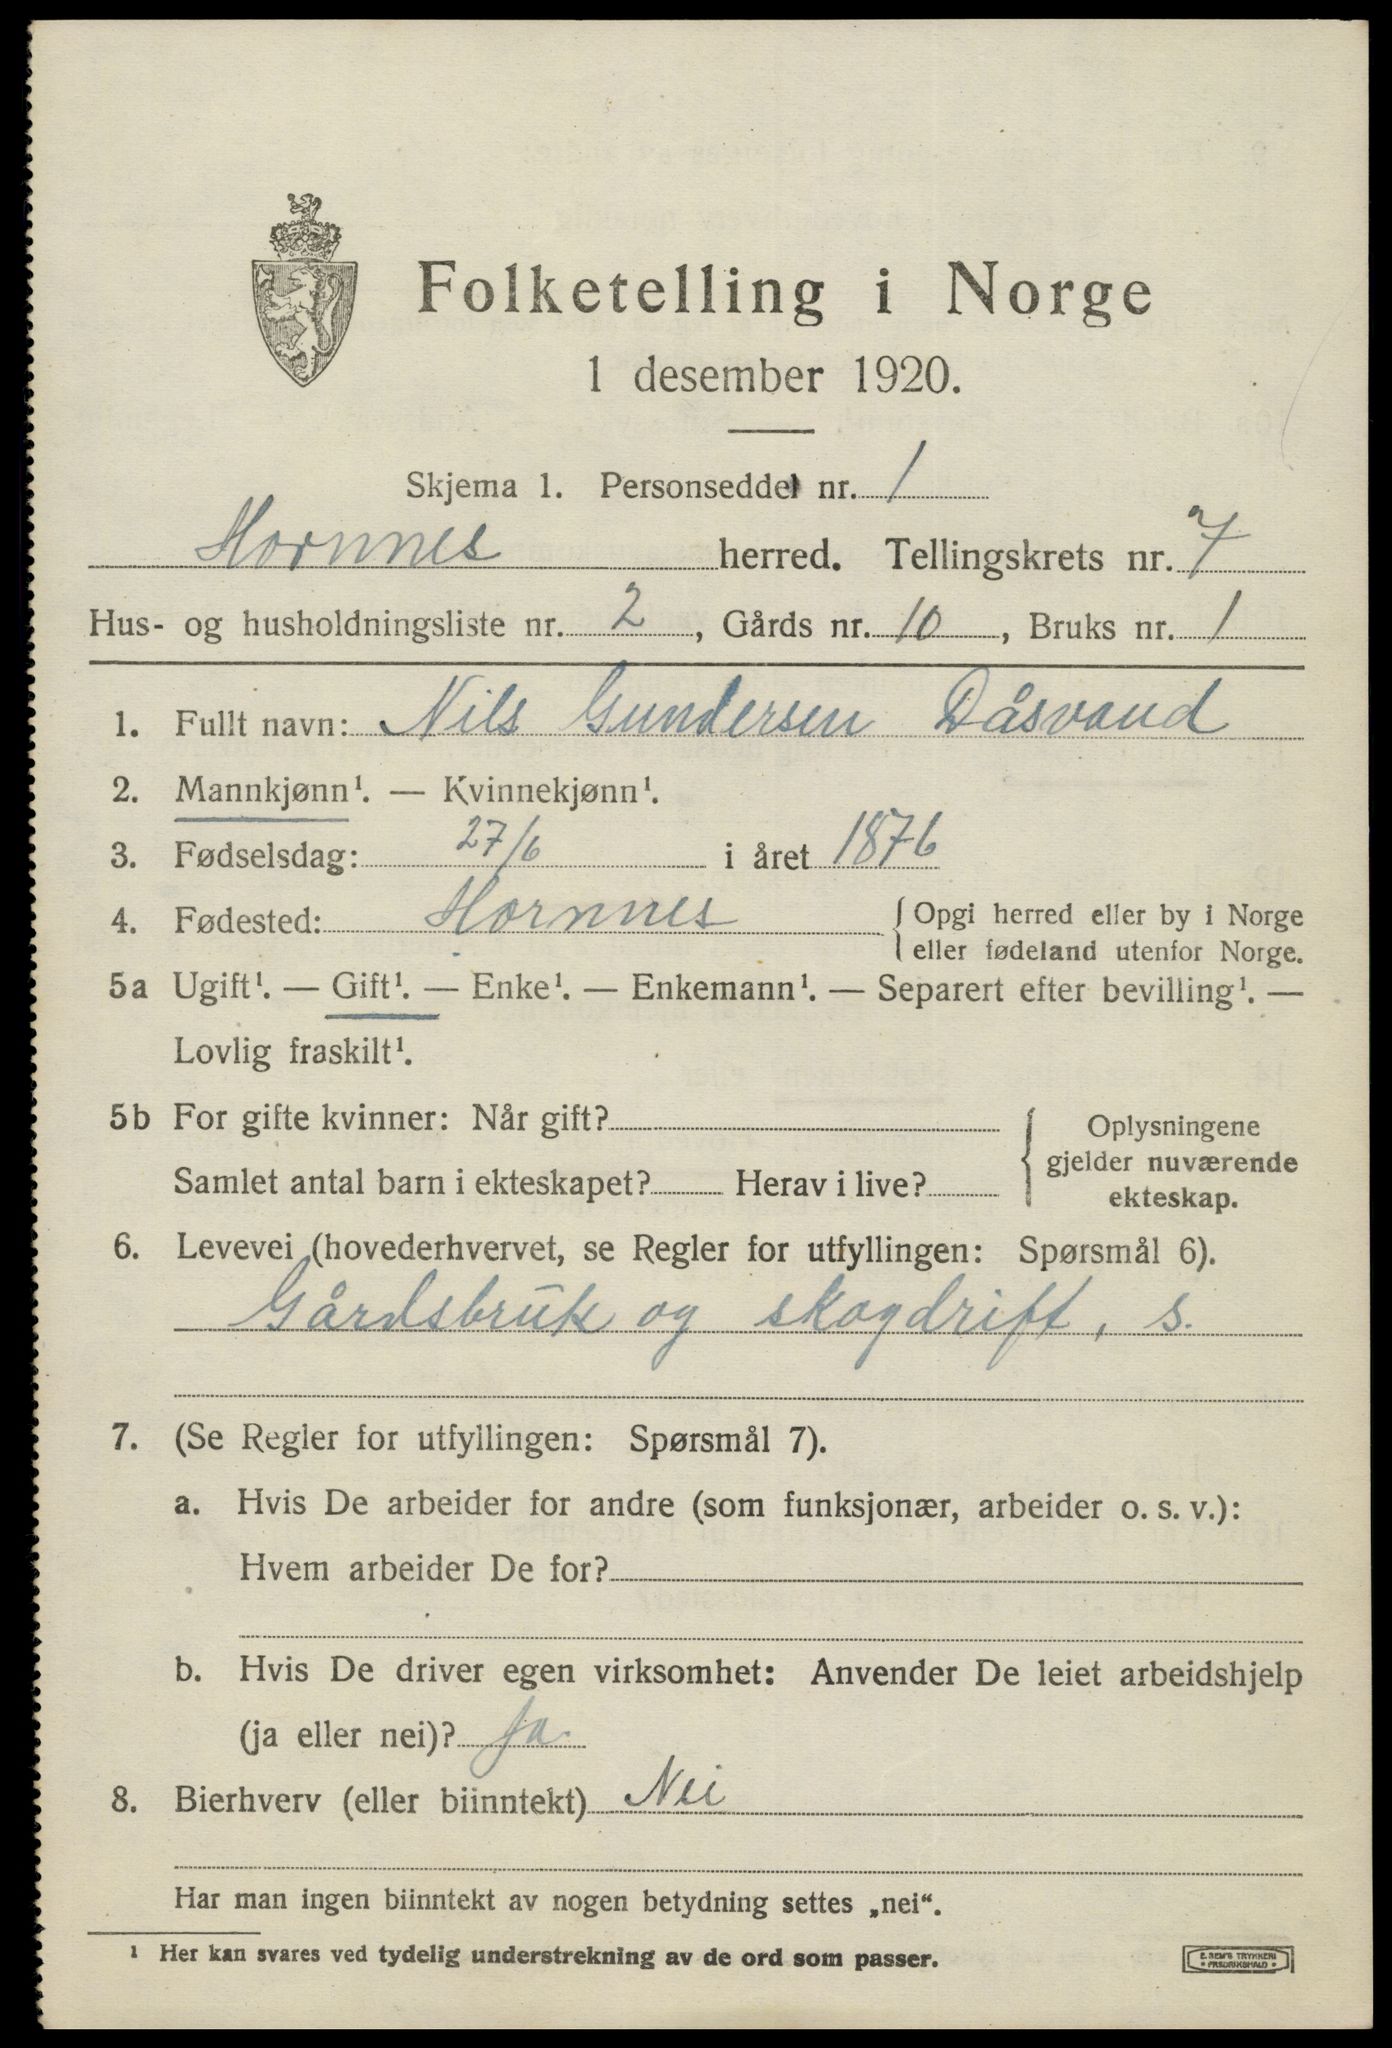 Folketelling i Norge
1 desember 1920.
Skjema 1. Personseddel nr. 1
Hornnes herred. Tellingskrets nr. 7
Hus- og husholdningsliste nr. 2, Gårds nr. 10, Bruks nr. 1
1. Fullt navn: Nils Gundersen Dåsvand
2. Mannkjønn¹. — Kvinnekjønn¹.
3. Fødselsdag: 27/6 i året 1876
4. Fødested: Hornnes { Opgi herred eller by i Norge
eller fødeland utenfor Norge.
5a Ugift¹. — Gift¹. — Enke¹. — Enkemann¹. — Separert efter bevilling¹. —
Lovlig fraskilt¹.
5b For gifte kvinner: Når gift? { Oplysningene
gjelder nuværende
Samlet antal barn i ekteskapet? Herav i live?
ekteskap.
6. Levevei (hovederhvervet, se Regler for utfyllingen: Spørsmål 6).
Gårdsbruk og skogdrift, s.
7. (Se Regler for utfyllingen: Spørsmål 7).
a. Hvis De arbeider for andre (som funksjonær, arbeider o. s. v.):
Hvem arbeider De for?
b. Hvis De driver egen virksomhet: Anvender De leiet arbeidshjelp
(ja eller nei)? Ja.
8. Bierhverv (eller biinntekt) Nei
Har man ingen biinntekt av nogen betydning settes „nei“.
¹ Her kan svares ved tydelig understrekning av de ord som passer.
E. SEM'S TRYKKERI
• FREDRIKSHALD •